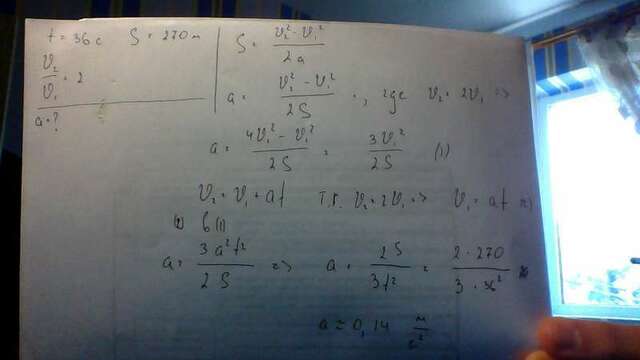 t = 36 c   S = 270 м
v₂/v₁ = 2
a = ?
S = (v₂² - v₁²)/2a
a = (v₂² - v₁²)/2S , где v₂ = 2v₁ =>
a = (4v₁² - v₁²)/2S = 3v₁²/2S (1)
v₂ = v₁ + at   т.к. v₂ = 2v₁ => v₁ = at (2)
(2) в (1)
a = 3a²t²/2S => a = 2S/3t² = (2·270)/(3·36²)
a ≈ 0,14 м/c²